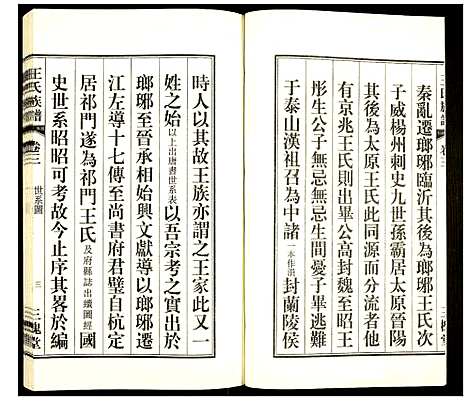 秦亂遷瑯琊臨沂其後為瑯琊王氏次
子威楊州刺史九世孫霸居太原晉陽
其後為太原王氏此同源而分流者他
有京兆王氏則出畢公高封魏至昭王
彤生公子無忌無忌生間憂子畢逃難
于泰山漢祖召為中諸一本作涓封蘭陵侯
時人以其故王族亦謂之王家此又一
姓之始以上出唐書世系表以吾宗考之實出於
瑯琊至晉丞相始興文獻導以瑯琊遷
江左導十七傳至尚書府君璧自杭定
居祁門遂為祁門王氏及府縣誌出績圖經國
史世系昭昭可考故今止序其畧於編
王氏族譜
卷三
世系圖
三
三槐堂